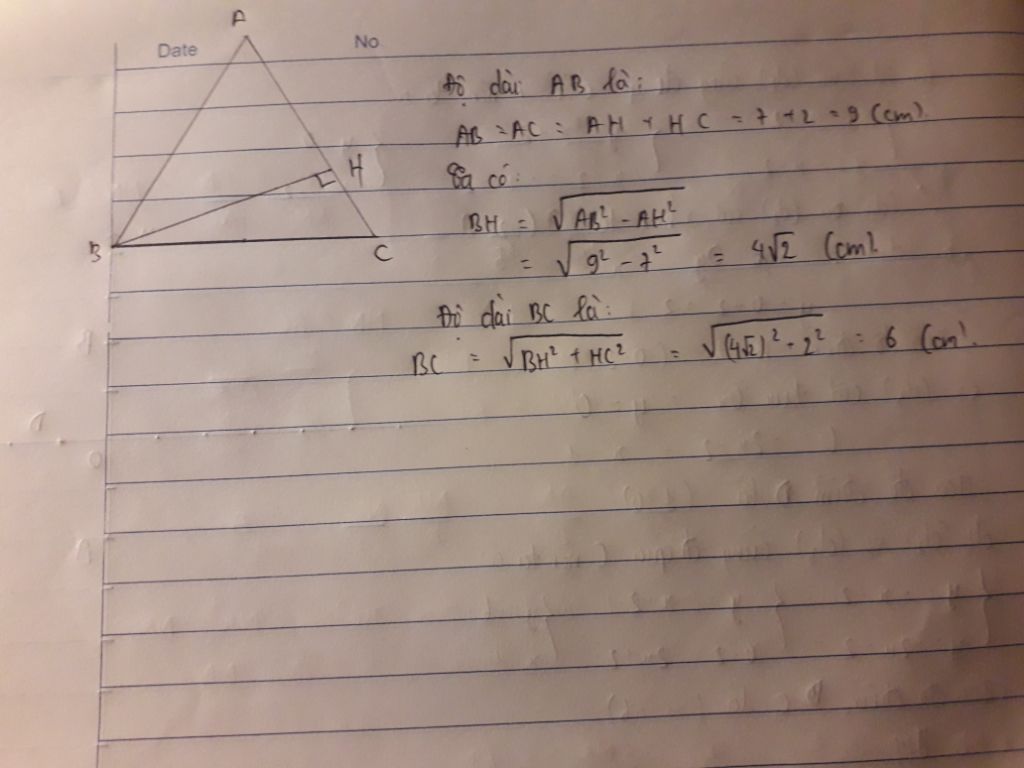 A
Date
No
H
B
C
Độ dài AB là:
AB = AC = AH + HC = 7 + 2 = 9 (cm).
Ta có:
BH = √AB² - AH²
= √9² - 7² = 4√2 (cm).
Độ dài BC là:
BC = √BH² + HC² = √(4√2)² + 2² = 6 (cm).